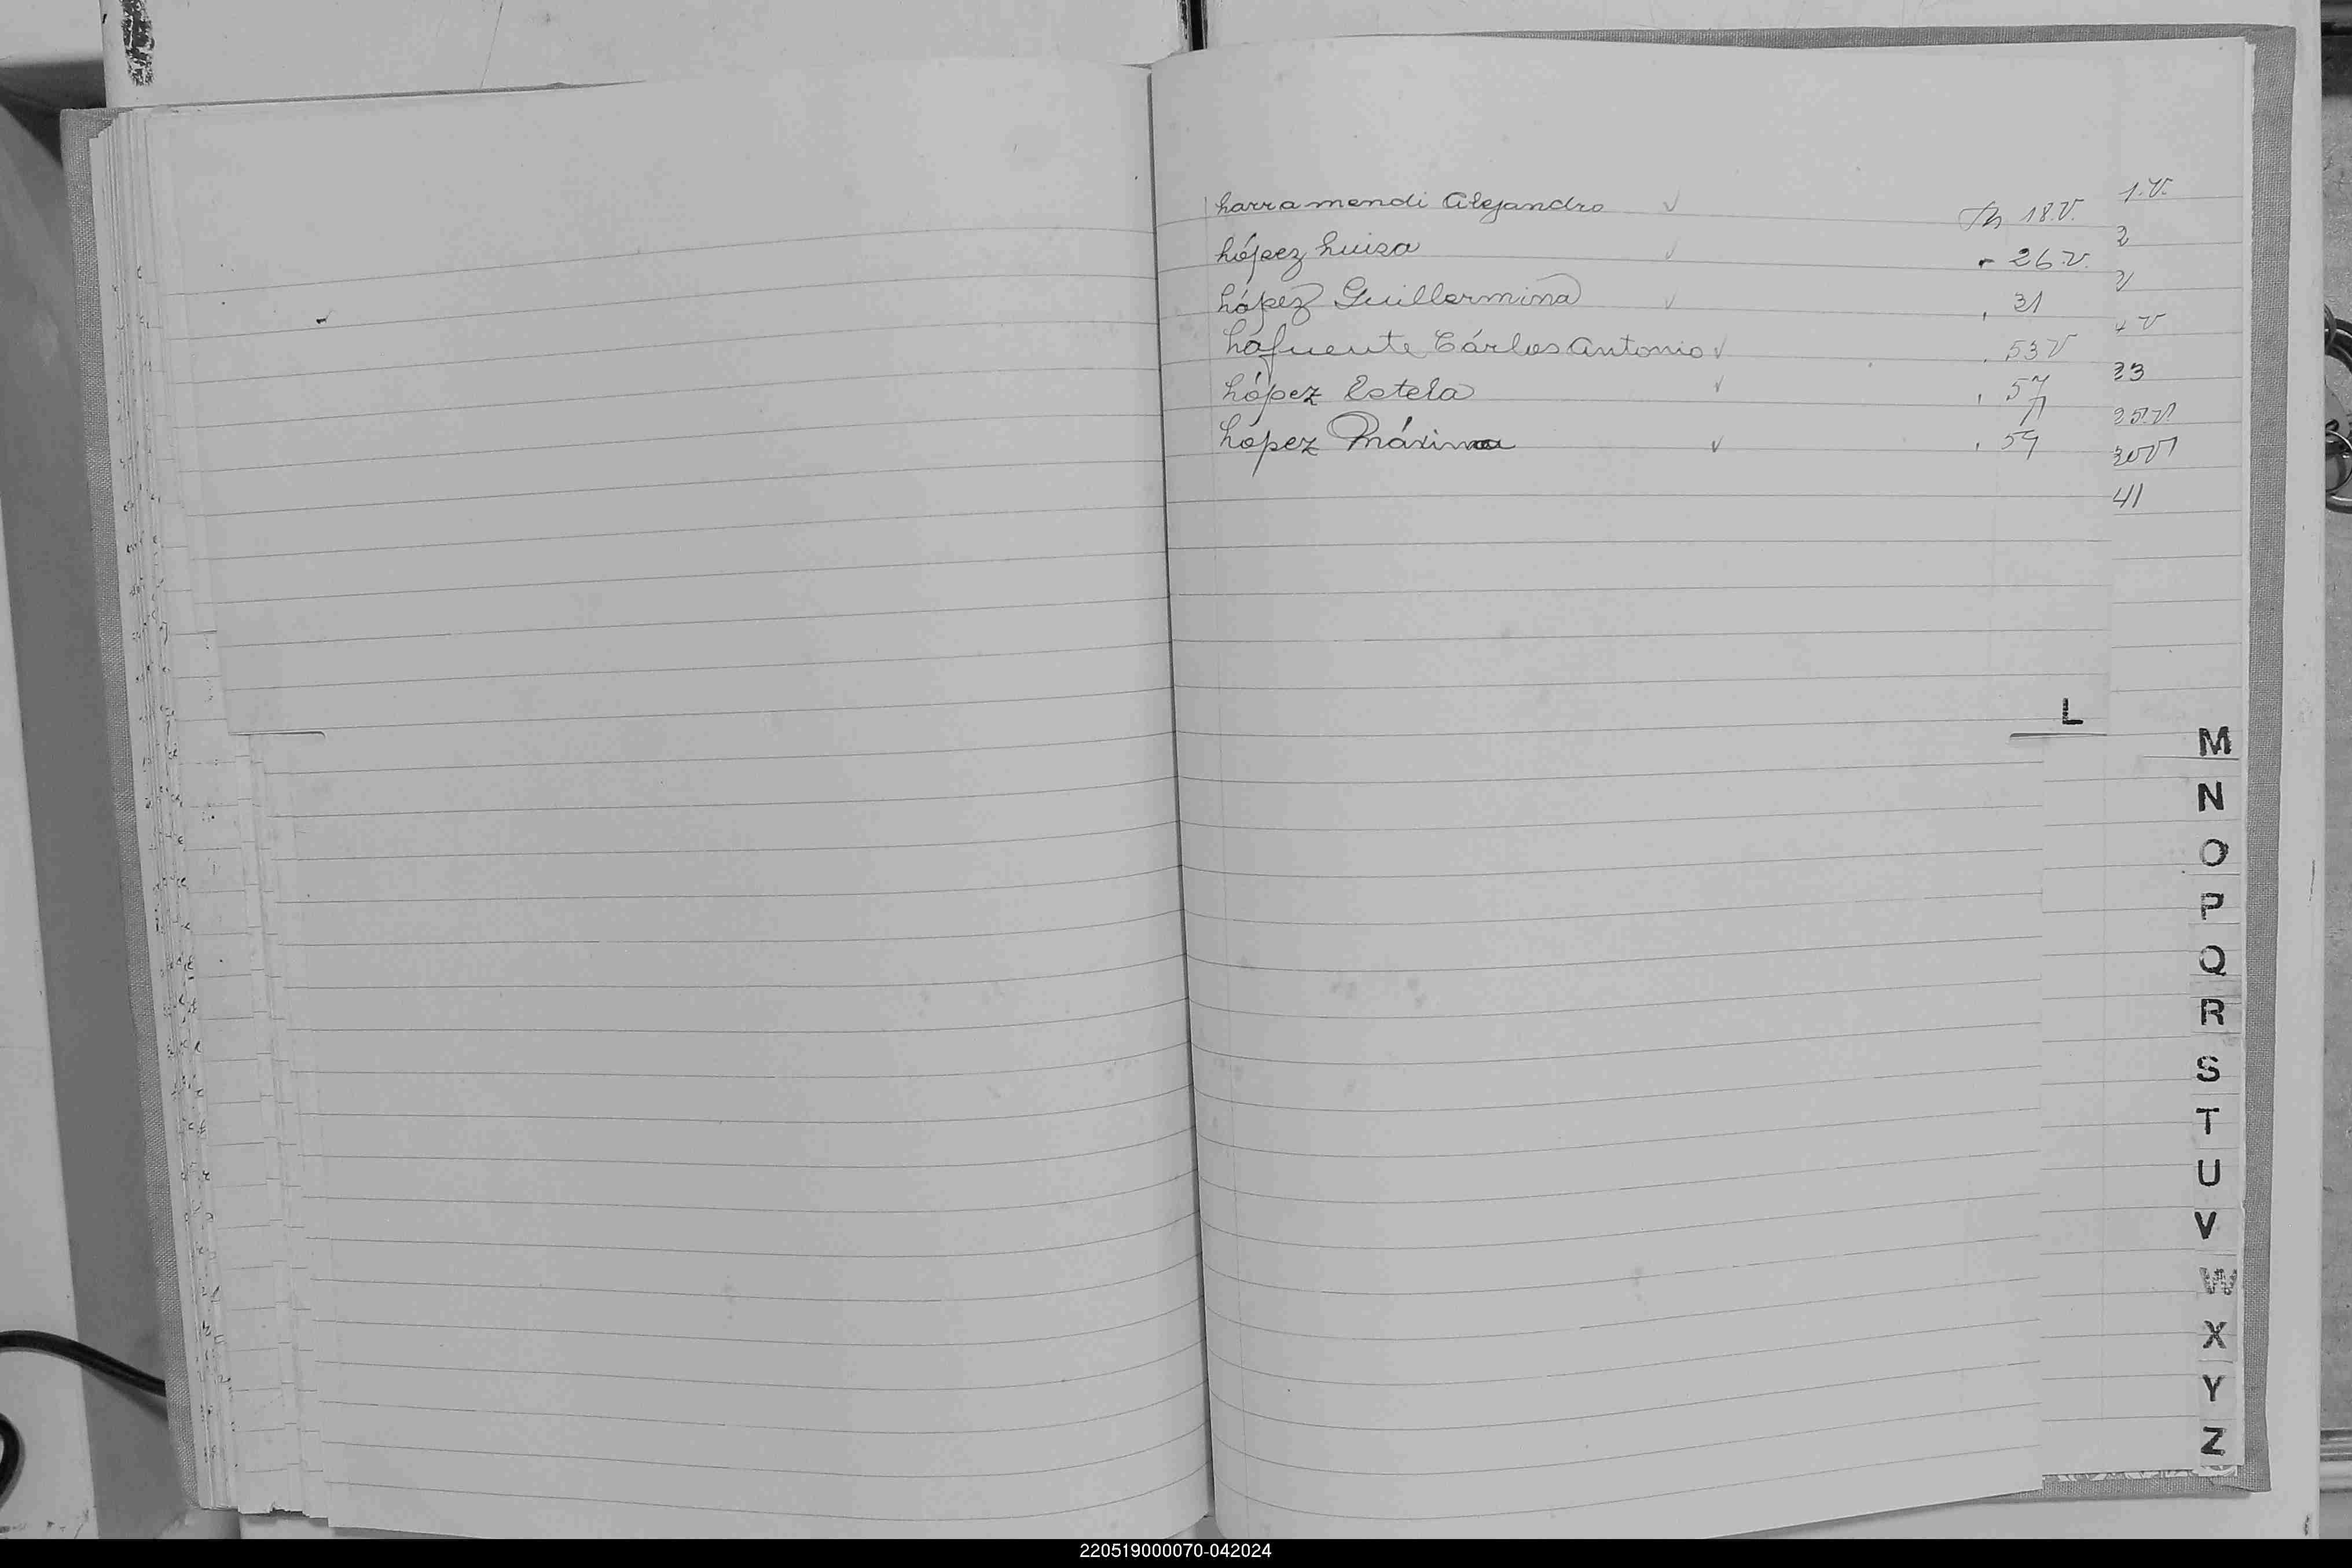 Larramendi Alejandro ✓ Fs 18 V.
López Luisa ✓ " 26 V.
López Guillermina ✓ " 31
Lafuente Cárlos Antonio ✓ " 53 V
López Estela ✓ " 57
López Máxima ✓ " 59
1. V.
2
4 V
23
25. V
30 V
41
L
M
N
O
P
Q
R
S
T
U
V
W
X
Y
Z
220519000070-042024